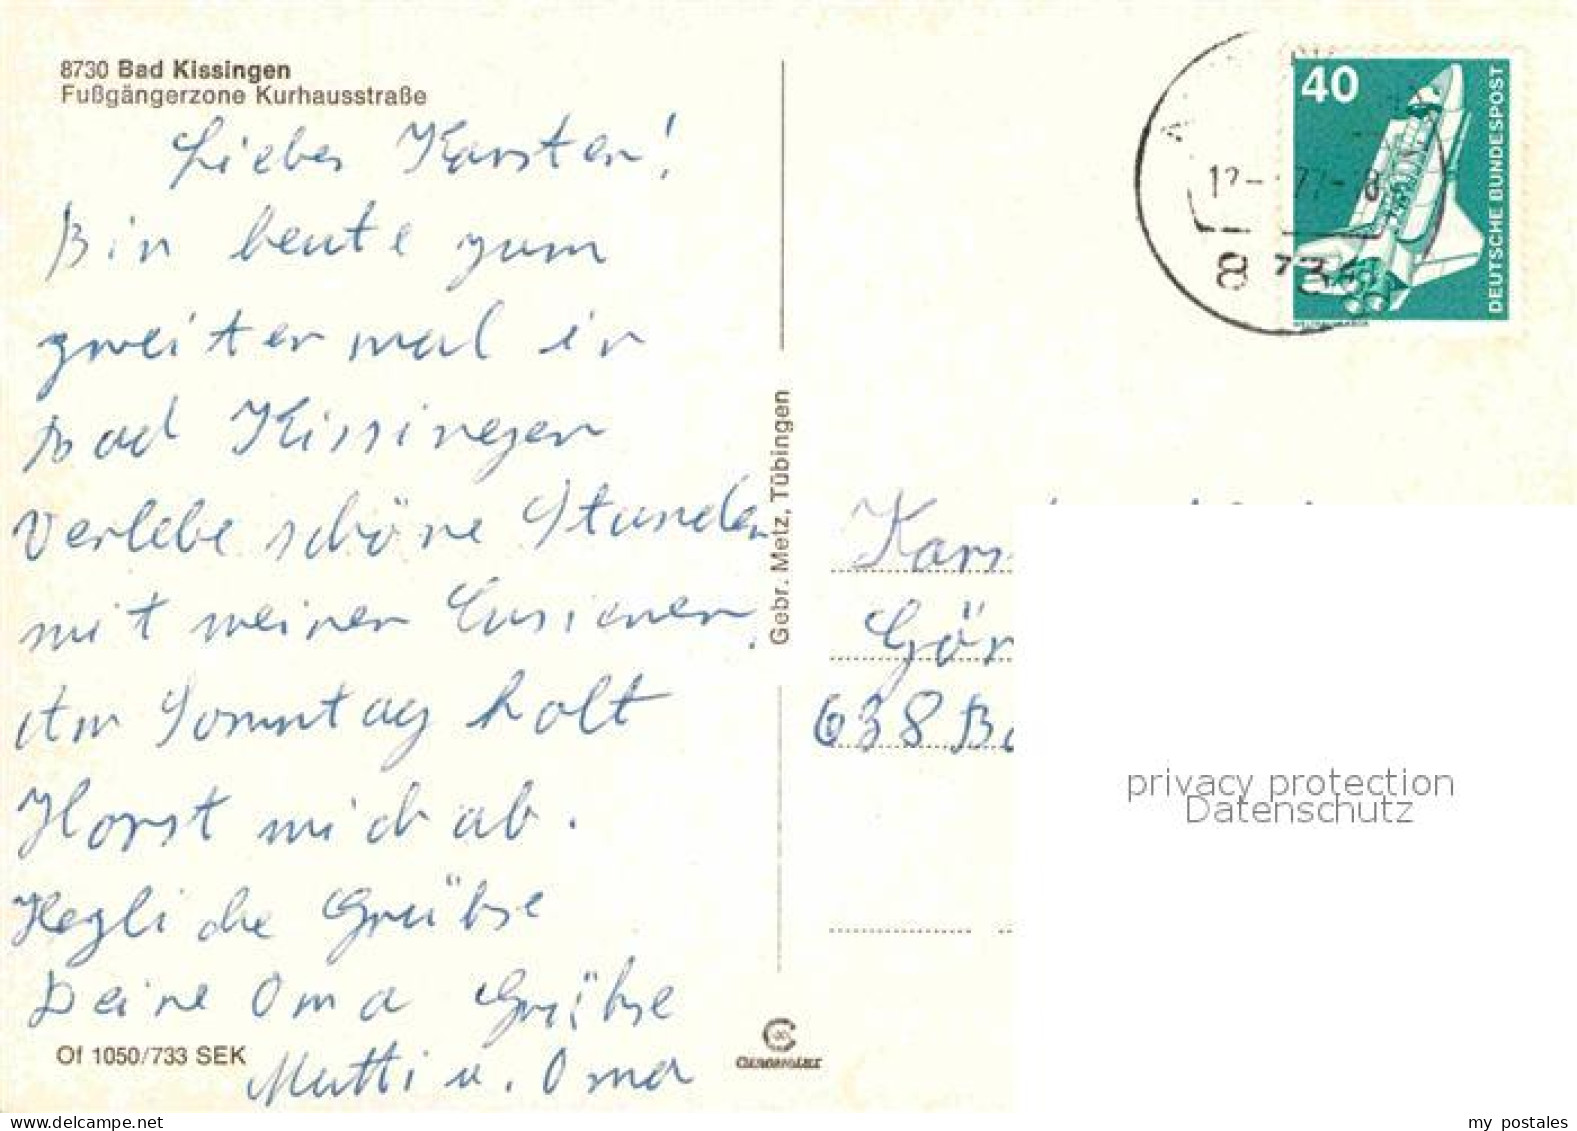 8730 Bad Kissingen
Fußgängerzone Kurhausstraße
Lieber Karsten!
Bin heute zum
zweiter mal in
Bad Kissingen
Verlebe schöne Stunden
mit meinen Cusienen.
Am Sonntag holt
Horst mich ab.
Hezliche Grüße
Deine Oma Grüße
Mutti u. Oma
Of 1050/733 SEK
Gebr. Metz, Tübingen
40
DEUTSCHE BUNDESPOST
873
Kars
Gör
638 Ba
privacy protection
Datenschutz
delcampe.net
my_postales